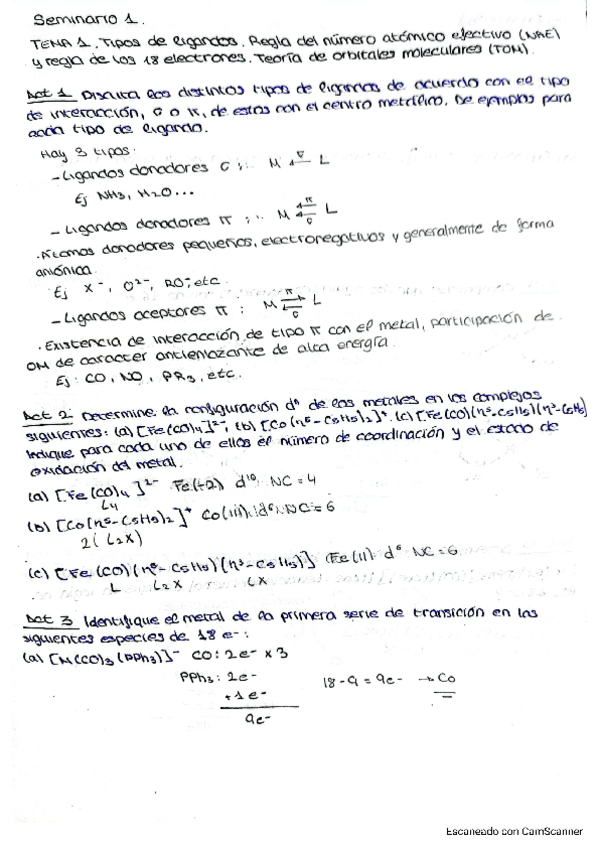 Seminario 1.
TEMA 1. Tipos de ligandos. Regla del número atómico efectivo (NAE)
y regla de los 18 electrones. Teoría de orbitales moleculares (TOM).
Act 1. Discuta los distintos tipos de ligandos de acuerdo con el tipo
de interacción, σ o π, de estos con el centro metálico. De ejemplos para
cada tipo de ligando.
Hay 3 tipos:
- Ligandos donadores σ ;.. M ←σ L
Ej NH3, H2O...
- Ligandos donadores π ;.. M ⇇ π σ L
. Átomos donadores pequeños, electronegativos y generalmente de forma
aniónica.
Ej X⁻, O²⁻, RO⁻, etc.
- Ligandos aceptores π : M ⇄ π σ L
. Existencia de interacción de tipo π con el metal, participación de
OM de caracter antienlazante de alta energía.
Ej: CO, NO, PR3, etc.
Act 2. Determine la configuración dⁿ de los metales en los complejos
siguientes: (a) [Fe(CO)4]²⁻; (b) [Co(η⁵-C5H5)2]⁺. (c) [Fe(CO)(η⁵-C5H5)(η³-C5H5)]
Indique para cada uno de ellos el número de coordinación y el estado de
oxidación del metal.
(a) [Fe(CO)4]²⁻ Fe(-2) d¹⁰ NC = 4
L4
(b) [Co(η⁵-C5H5)2]⁺ Co(III). d⁶. NC = 6
2(L2X)
(c) [Fe(CO)(η⁵-C5H5)(η³-C5H5)] Fe(II) d⁶ NC = 6
L L2X LX
Act 3 Identifique el metal de la primera serie de transición en las
siguientes especies de 18 e⁻:
(a) [M(CO)3(PPh3)]⁻ CO: 2e⁻ x 3
PPh3: 2e⁻ 18 - 9 = 9e⁻ → Co
+1e⁻
9e⁻
Escaneado con CamScanner